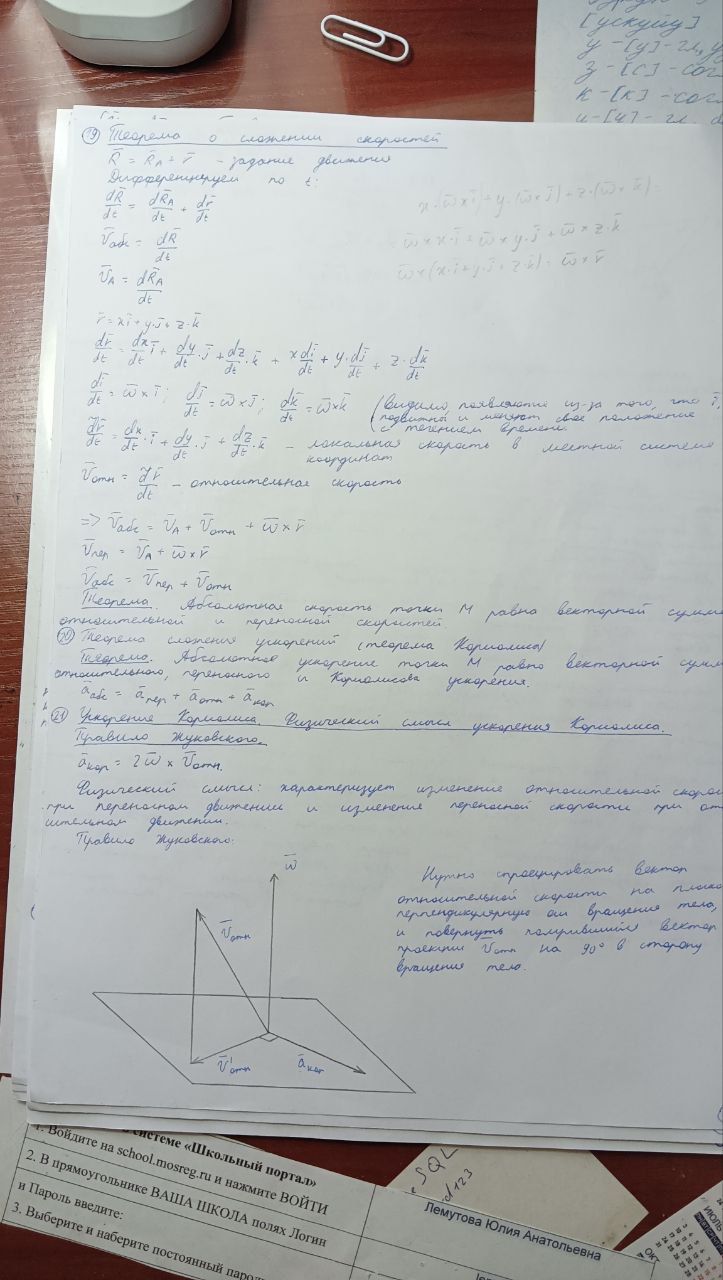 [ускушу]
у - [у] - гл, у
з - [с] - сог
к - [к] - соглас
19 Теорема о сложении скоростей
R̄ = R̄_A + r̄ - задание движения
Дифференцируем по t:
dR̄/dt = dR̄_A/dt + dr̄/dt
x·(ω̄×ī) + y·(ω̄×j̄) + z·(ω̄×k̄) =
V̄абс = dR̄/dt
ω̄×x·ī + ω̄×y·j̄ + ω̄×z·k̄
V̄_A = dR̄_A/dt
ω̄×(x·ī + y·j̄ + z·k̄) = ω̄×r̄
r̄ = xī + y·j̄ + z·k̄
dr̄/dt = dx/dt ī + dy/dt·j̄ + dz/dt·k̄ + x dī/dt + y·dj̄/dt + z·dk̄/dt
dī/dt = ω̄×ī; dj̄/dt = ω̄×j̄; dk̄/dt = ω̄×k̄ (Видимо, появляются из-за того, что ī,
подвижны и меняют свое положение
с течением времени.
d̃r̄/dt = dx/dt·ī + dy/dt·j̄ + dz/dt·k̄ - локальная скорость в местной системе
координат
V̄отн = d̃r̄/dt - относительная скорость
=> V̄абс = V̄_A + V̄отн + ω̄×r̄
V̄пер = V̄_A + ω̄×r̄
V̄абс = V̄пер + V̄отн
Теорема. Абсолютная скорость точки М равна векторной сумме
относительной и переносной скоростей
20 Теорема сложения ускорений (теорема Кориолиса)
Теорема. Абсолютное ускорение точки М равно векторной сумм
относительного, переносного и Кориолисова ускорения.
āабс = āпер + āотн + āкор
21 Ускорение Кориолиса. Физический смысл ускорения Кориолиса.
Правило Жуковского.
āкор = 2ω̄ × V̄отн.
Физический смысл: характеризует изменение относительной скорос
при переносном движении и изменения переносной скорости при от
сительном движении.
Правило Жуковского:
ω̄
V̄отн
V̄'отн
āкор
Нужно спроецировать вектор
относительной скорости на плоско
перпендикулярную оси вращения тела,
и повернуть получившийся вектор
проекции V̄отн на 90° в сторону
вращения тела.
системе «Школьный портал»
1. Войдите на school.mosreg.ru и нажмите ВОЙТИ
2. В прямоугольнике ВАША ШКОЛА полях Логин
и Пароль введите:
3. Выберите и наберите постоянный парол
Лемутова Юлия Анатольевна
SQL
d123
ИЮЛЬ
ОКТ